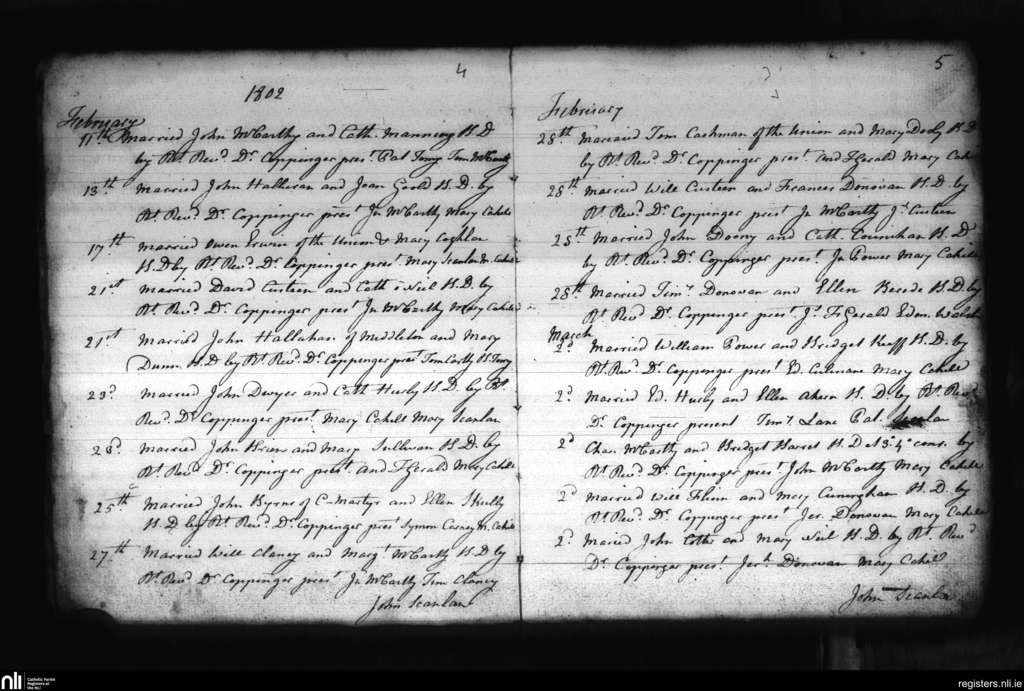 4
1802
February
11th Married John McCarthy and Cath. Manning H.D
by Rt. Revd. Dr. Coppinger prest. Pat Terry Tim McCarthy
13th Married John Halliran and Joan Goold H.D. by
Rt. Revd. Dr. Coppinger prest. Jn McCarthy Mary Cahill
17th Married Owen Erwin of the Union & Mary Coghlan
H.D by Rt. Revd. Dr. Coppinger prest. Mary Scanlan M. Cahill
21st Married David Custeen and Cath Neil H.D. by
Rt. Revd. Dr. Coppinger prest. Jn McCarthy Mary Cahill
21st Married John Hallahan of Middleton and Mary
Dunn H.D by Rt. Revd. Dr. Coppinger prest. Tom Carthy H. Terry
23d Married John Dwyer and Cath Hurly H.D. by Rt.
Revd. Dr. Coppinger prest. Mary Cahill Mary Scanlan
23d Married John Brien and Mary Sullivan H.D. by
Rt. Revd. Dr. Coppinger prest. and FGerald Mary Cahill
25th Married John Byrne of C-Martyr and Ellen Skully
H.D by Rt. Revd. Dr. Coppinger prest. Symon Carney M. Cahill
27th Married Will Clancy and Margt. McCarthy H.D by
Rt. Revd. Dr. Coppinger prest. Jn McCarthy Tim Clancy
John Scanlan
5
February
28th Married Tom Cashman of the Union and Mary Dody H.D
by Rt. Revd. Dr. Coppinger prest. and FGerald Mary Cahill
28th Married Will Custeen and Frances Donovan H.D. by
Rt. Revd. Dr. Coppinger prest. Jn McCarthy Js. Custeen
28th Married John Doony and Cath. Counihan H.D
by Rt. Revd. Dr. Coppinger prest. Jn Power Mary Cahill
28th Married Timy. Donovan and Ellen H.D by
Rt. Revd. Dr. Coppinger prest. Js. FGerald Edm. Walsh
March
2d Married William Power and Bridget Keeff H.D. by
Rt. Revd. Dr. Coppinger prest. Ed. Mary Cahill
2d Married Ed. Hurly and Ellen Ahern H.D by Rt. Revd
Dr. Coppinger present Timy. Lane Pat. Scanlan
2d Chas. McCarthy and Bridget Barret H.D at 3d. 4th cons. by
Rt. Revd. Dr. Coppinger prest. John McCarthy Mary Cahill
2d Married Will Flinn and Mary Cuningham H.D. by
Rt. Revd. Dr. Coppinger prest. Jer. Donovan Mary Cahill
2d Maried John Cotter and Mary Neil H.D. by Rt. Revd
Dr. Coppinger prest. Jerh. Donovan Mary Cahill
John Scanlan
nli Catholic Parish
Registers at
the NLI
registers.nli.ie